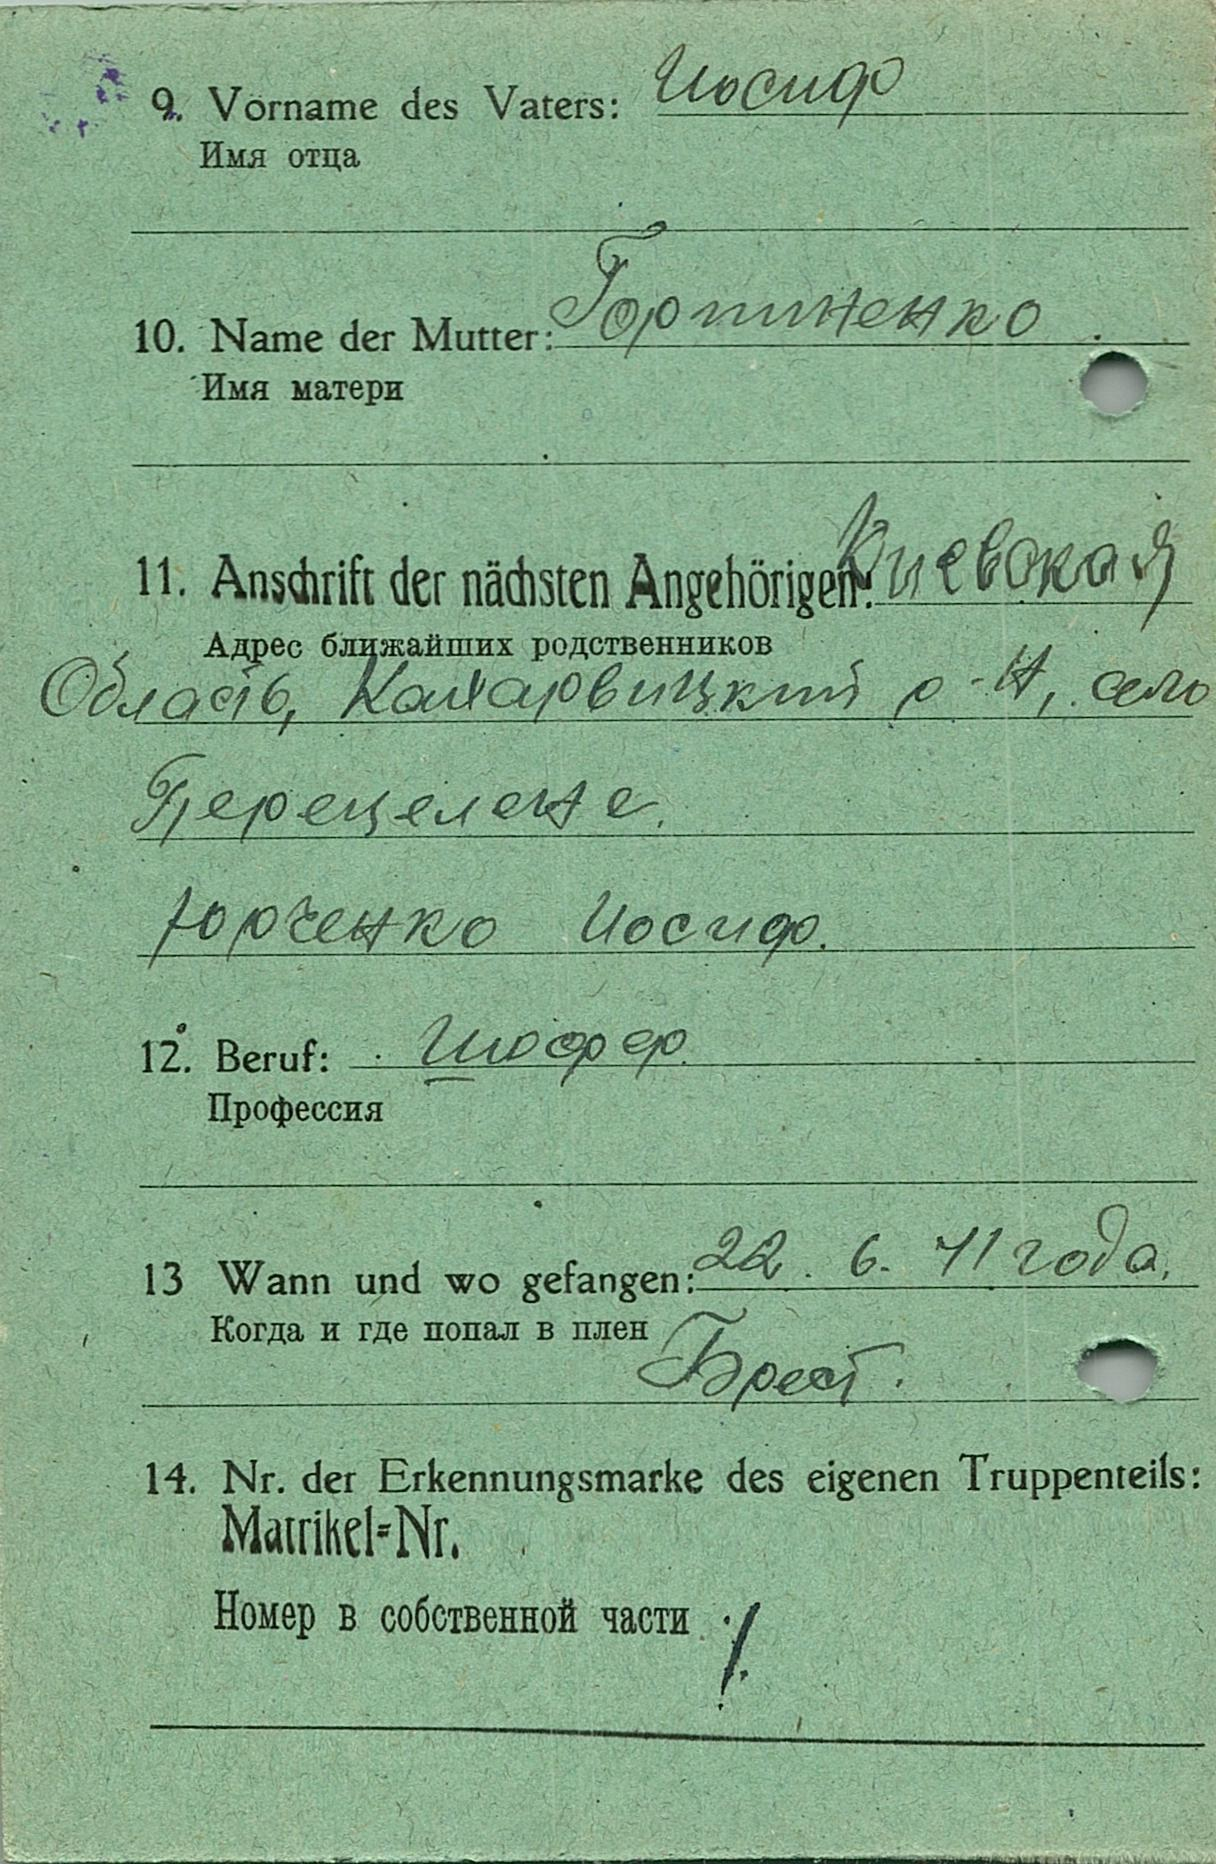 9. Vorname des Vaters: Иосиф
Имя отца
10. Name der Mutter: Горпиненко.
Имя матери
11. Anschrift der nächsten Angehörigen: Киевская
Адрес ближайших родственников
Область, р-н, село
Юрченко Иосиф.
12. Beruf: Шофер
Профессия
13 Wann und wo gefangen: 22. 6. 41 года.
Когда и где попал в плен
Брест.
14. Nr. der Erkennungsmarke des eigenen Truppenteils:
Matrikel-Nr.
Номер в собственной части /.